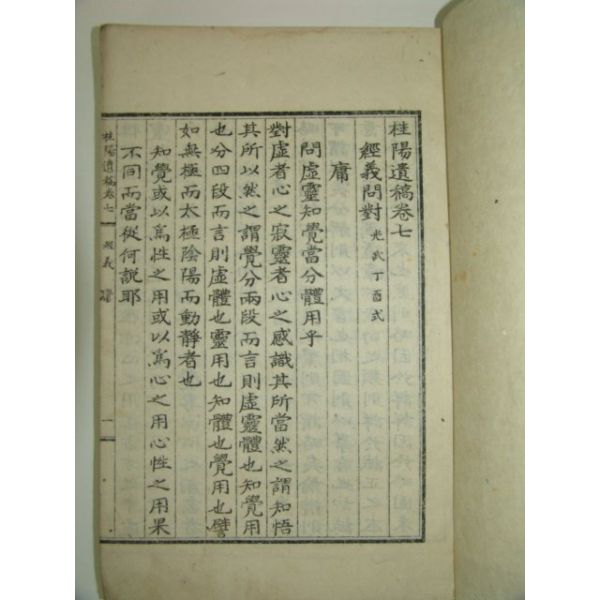 桂陽遺稿卷七
經義問對 光武丁酉式
庸
問虛靈知覺當分體用乎
對虛者心之寂靈者心之感識其所當然之謂知悟
其所以然之謂覺分兩段而言則虛靈體也知覺用
也分四段而言則虛體也靈用也知體也覺用也譬
如無極而太極陰陽而動靜者也
知覺或以爲性之用或以爲心之用心性之用果
不同而當從何說耶
桂陽遺稿卷七 經義 庸 一